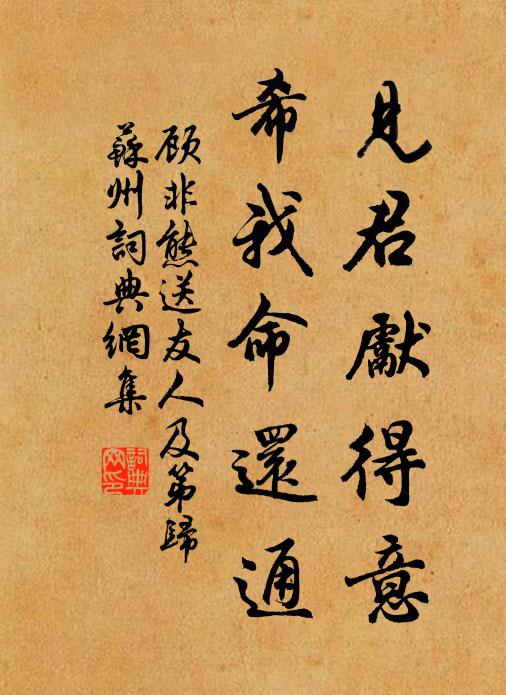 見君獻得意
希我命還通
顾非熊送友人及第歸
蘇州詞典網集
詞典
網印